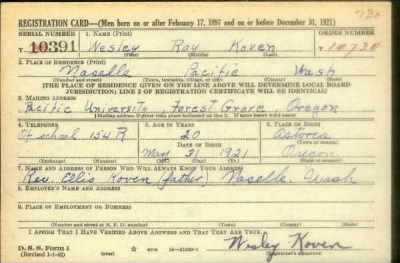 REGISTRATION CARD—(Men born on or after February 17, 1897 and on or before December 31, 1921)
SERIAL NUMBER 1. NAME (Print) ORDER NUMBER
T 10391 Wesley Roy Koven 10,730
(First) (Middle) (Last)
2. PLACE OF RESIDENCE (Print)
Naselle Pacific Wash
(Number and street) (Town, township, village, or city) (County) (State)
[THE PLACE OF RESIDENCE GIVEN ON THE LINE ABOVE WILL DETERMINE LOCAL BOARD
JURISDICTION; LINE 2 OF REGISTRATION CERTIFICATE WILL BE IDENTICAL]
3. MAILING ADDRESS
Pacific University Forest Grove, Oregon
[Mailing address if other than place indicated on line 2. If same insert word same]
4. TELEPHONE 5. AGE IN YEARS 6. PLACE OF BIRTH
Of school 154 R 20 Astoria
DATE OF BIRTH
May 31 1921 Oregon
(Exchange) (Number) (Mo.) (Day) (Yr.) (State or country)
7. NAME AND ADDRESS OF PERSON WHO WILL ALWAYS KNOW YOUR ADDRESS
Rev. Ellis Koven (father) Naselle. Wash
8. EMPLOYER'S NAME AND ADDRESS
9. PLACE OF EMPLOYMENT OR BUSINESS
(Number and street or R. F. D. number) (Town) (County) (State)
I AFFIRM THAT I HAVE VERIFIED ABOVE ANSWERS AND THAT THEY ARE TRUE.
D. S. S. Form 1
(Revised 1-1-42) GPO Wesley Koven